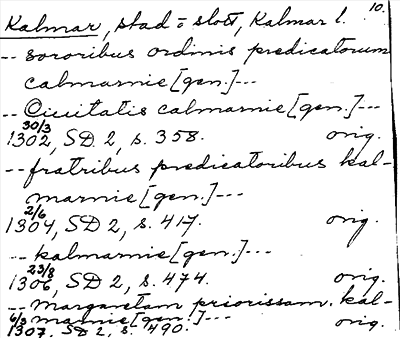 10.
Kalmar, stad o slott, Kalmar l.
-- sororibus ordinis predicatorum
calmarnie [gen.] ---
-- Ciuitatis calmarnie [gen.] ---
30/3
1302, SD 2, s. 358. orig.
-- fratribus predicatoribus kal-
marnie [gen.] ---
2/6
1304, SD 2, s. 417. orig.
-- kalmarnie [gen.] ---
23/8
1306, SD 2, s. 474. orig.
-- Margaretam priorissam. kal-
marnie [gen.] ---
6/3
1307, SD 2, s. 490. orig.